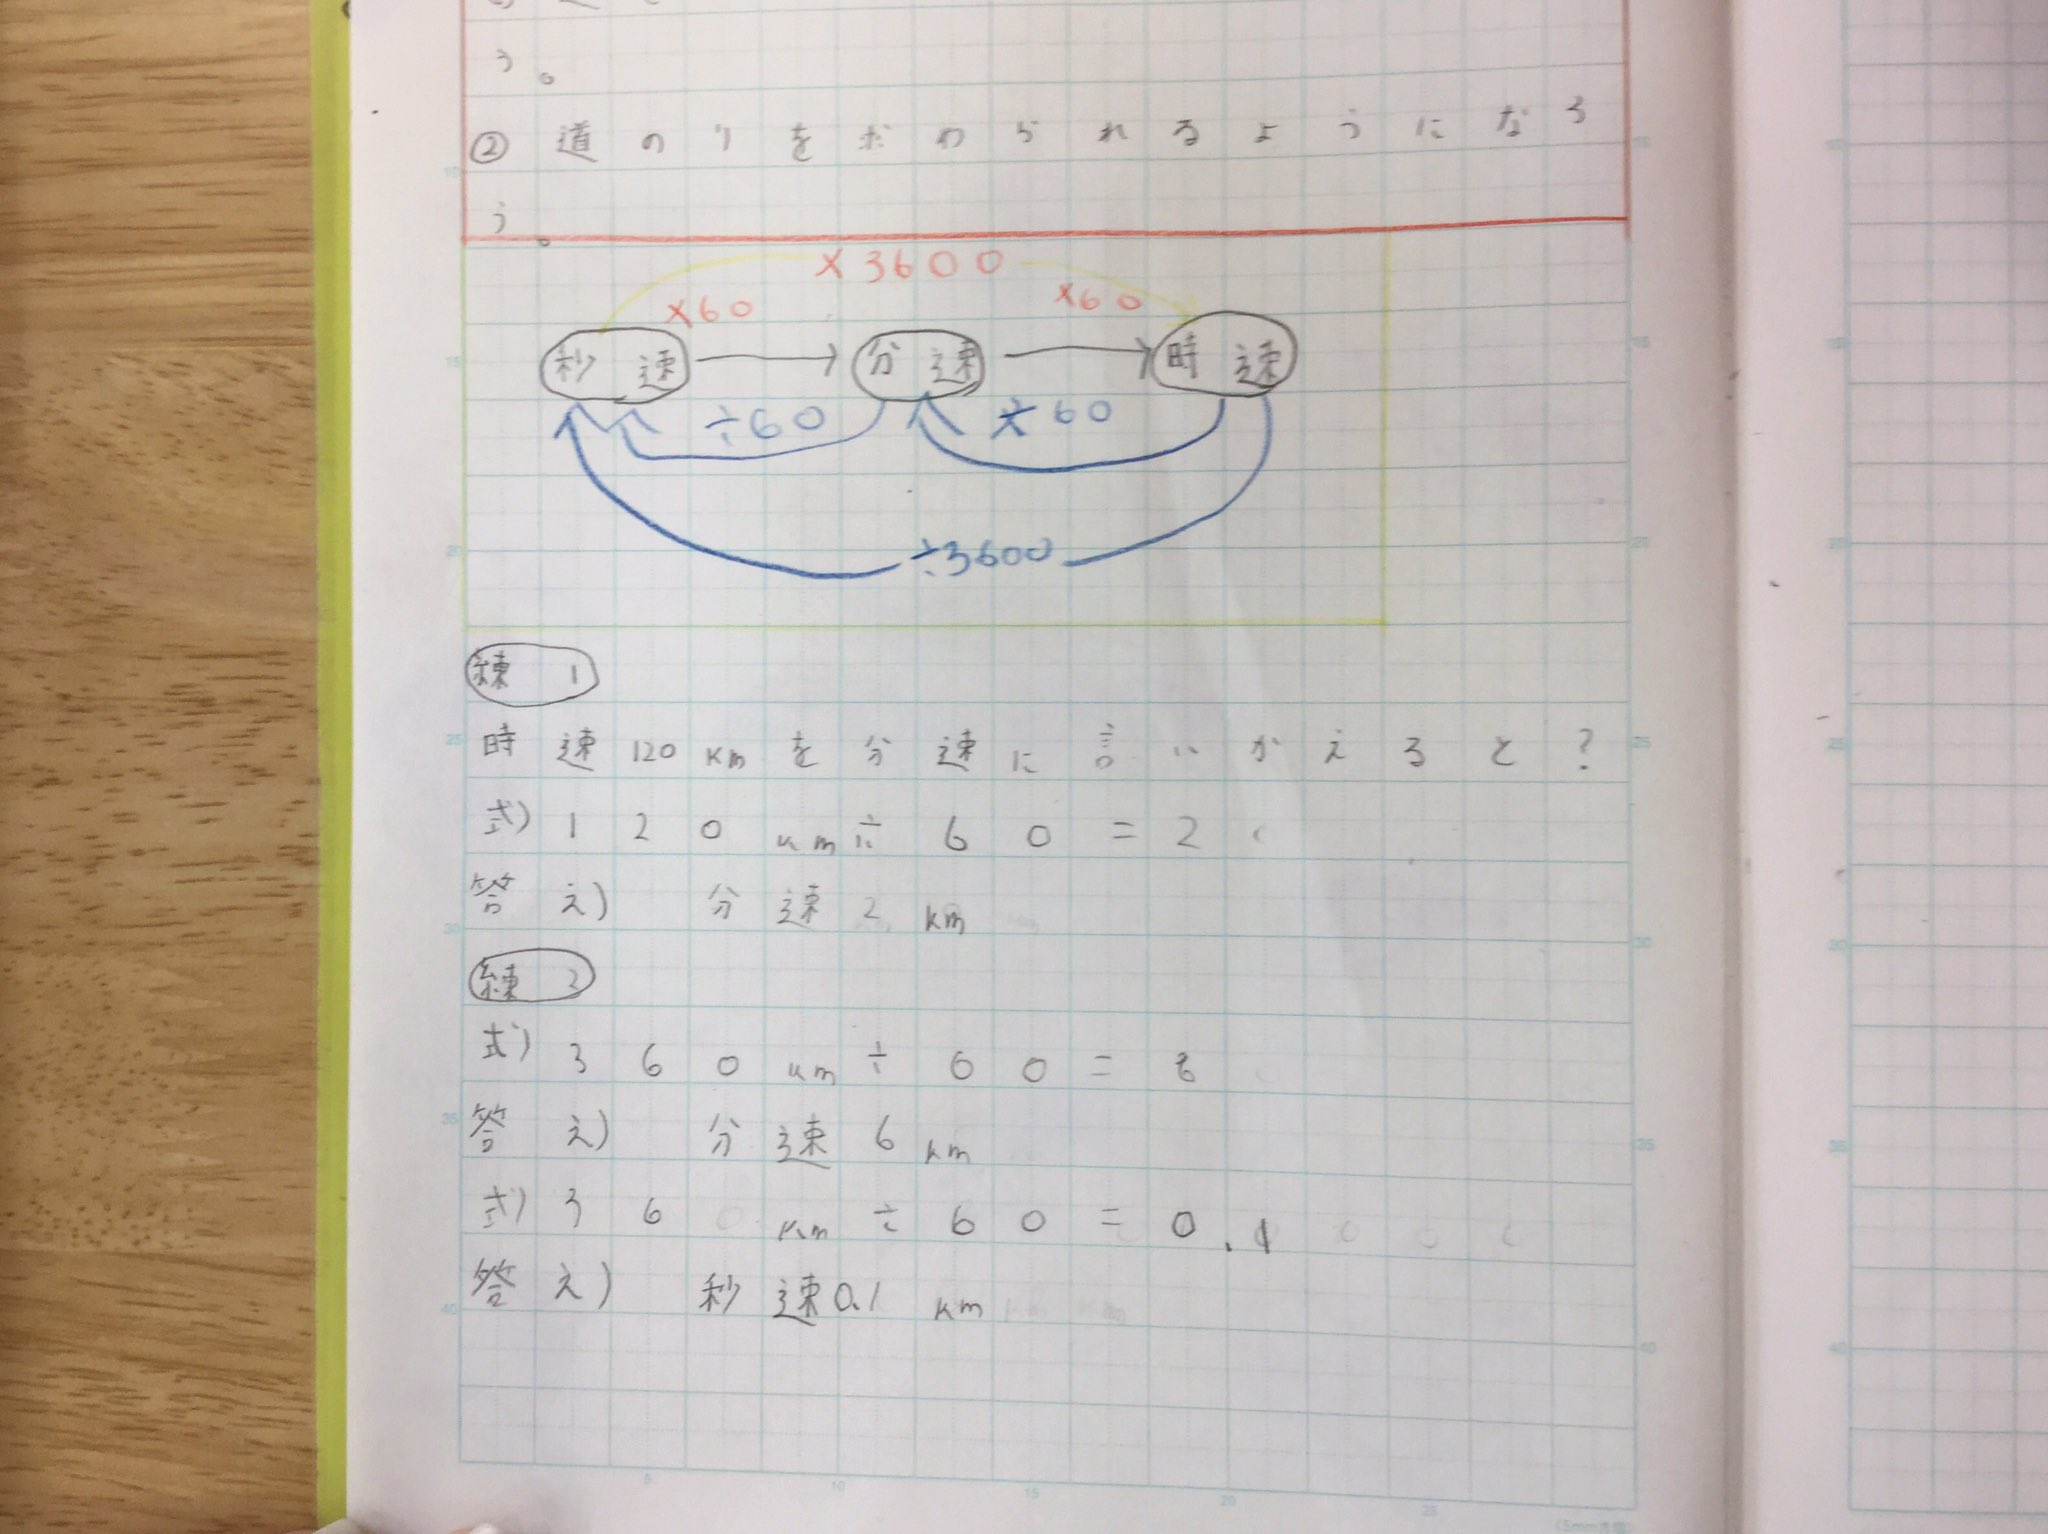 う。
② 道のりをボわられるようになろ
う。
×3600
×60 ×60
秒速 分速 時速
÷60 ÷60
÷3600
練1
時速120kmを分速に言いかえると?
式)120km÷60=2
答え) 分速2km
練2
式)360km÷60=6
答え) 分速6km
式)36 km÷60=0.1
答え) 秒速0.1km